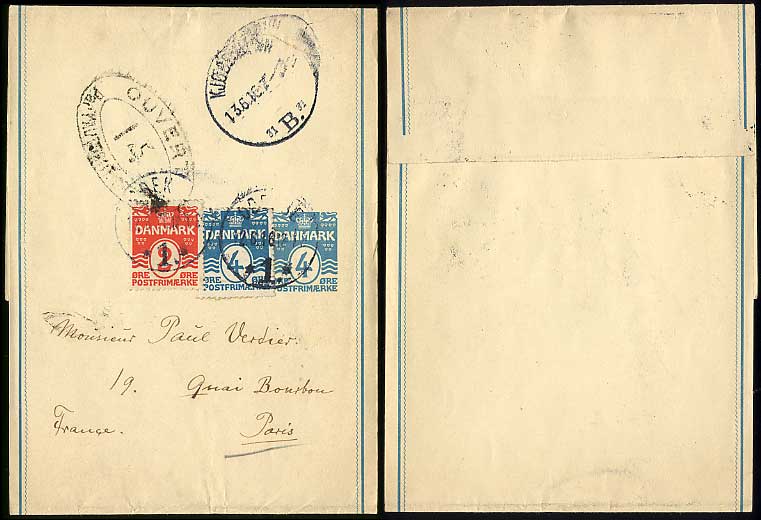 KJØBENHAVN
13.6.16.7
31 B. 31
OUVERT
35
DANMARK
2
ØRE ØRE
POSTFRIMÆRKE
DANMARK
4
ØRE ØRE
POSTFRIMÆRKE
DANMARK
4
ØRE ØRE
POSTFRIMÆRKE
1.
1
Monsieur Paul Verdier.
19. Quai Bourbon
France. Paris